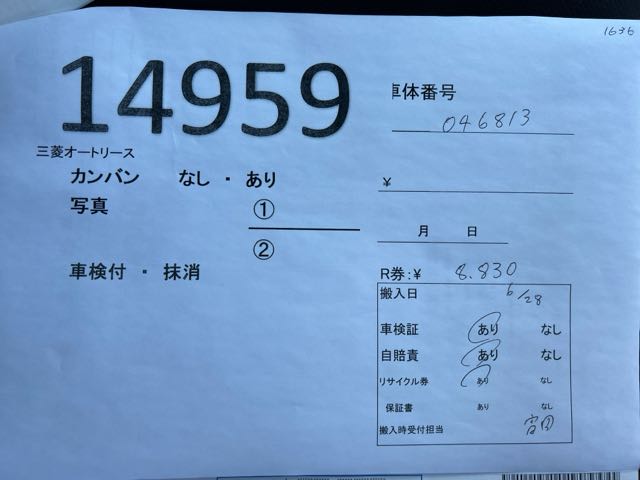 1636
14959
三菱オートリース
車体番号
046813
カンバン なし ・ あり
¥
写真 ①
②
月 日
車検付 ・ 抹消
R券:¥ 8.830
搬入日 6/28
車検証 あり なし
自賠責 あり なし
リサイクル券 あり なし
保証書 あり なし
搬入時受付担当